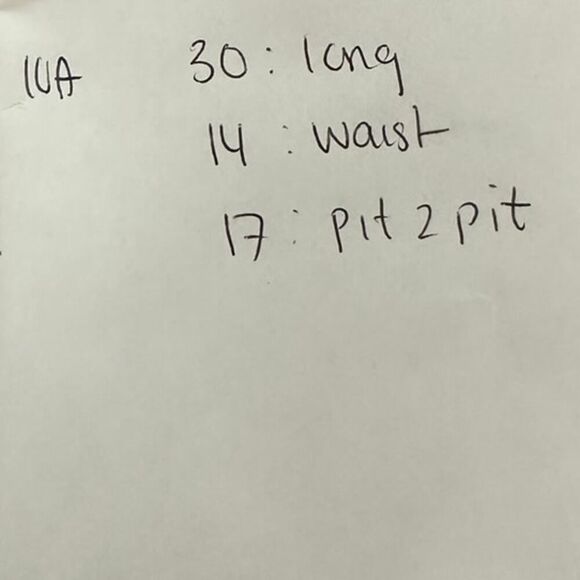 30 : long
14 : waist
17 : pit 2 pit